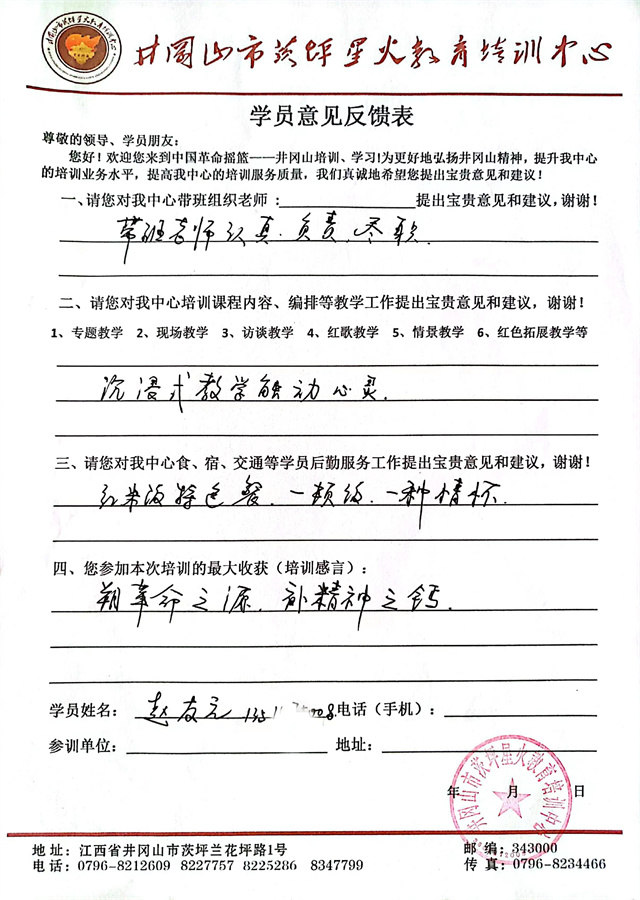 井冈山市茨坪星火教育培训中心
学员意见反馈表
尊敬的领导、学员朋友：
您好！欢迎您来到中国革命摇篮——井冈山培训、学习！为更好地弘扬井冈山精神，提升我中心
的培训业务水平，提高我中心的培训服务质量，我们真诚地希望您提出宝贵意见和建议！
一、请您对我中心带班组织老师：提出宝贵意见和建议，谢谢！
带班老师认真、负责、尽职.
二、请您对我中心培训课程内容、编排等教学工作提出宝贵意见和建议，谢谢！
1、专题教学 2、现场教学 3、访谈教学 4、红歌教学 5、情景教学 6、红色拓展教学等
沉浸式教学触动心灵.
三、请您对我中心食、宿、交通等学员后勤服务工作提出宝贵意见和建议，谢谢！
红米饭特色餐、一种情怀.
四、您参加本次培训的最大收获（培训感言）：
革命之源、补精神之钙.
学员姓名：赵友元 电话（手机）：
参训单位： 地址：
年 月 日
井冈山市茨坪星火教育培训中心
地址：江西省井冈山市茨坪兰花坪路1号 邮编：343000
电话：0796-8212609 8227757 8225286 8347799 传真：0796-8234466